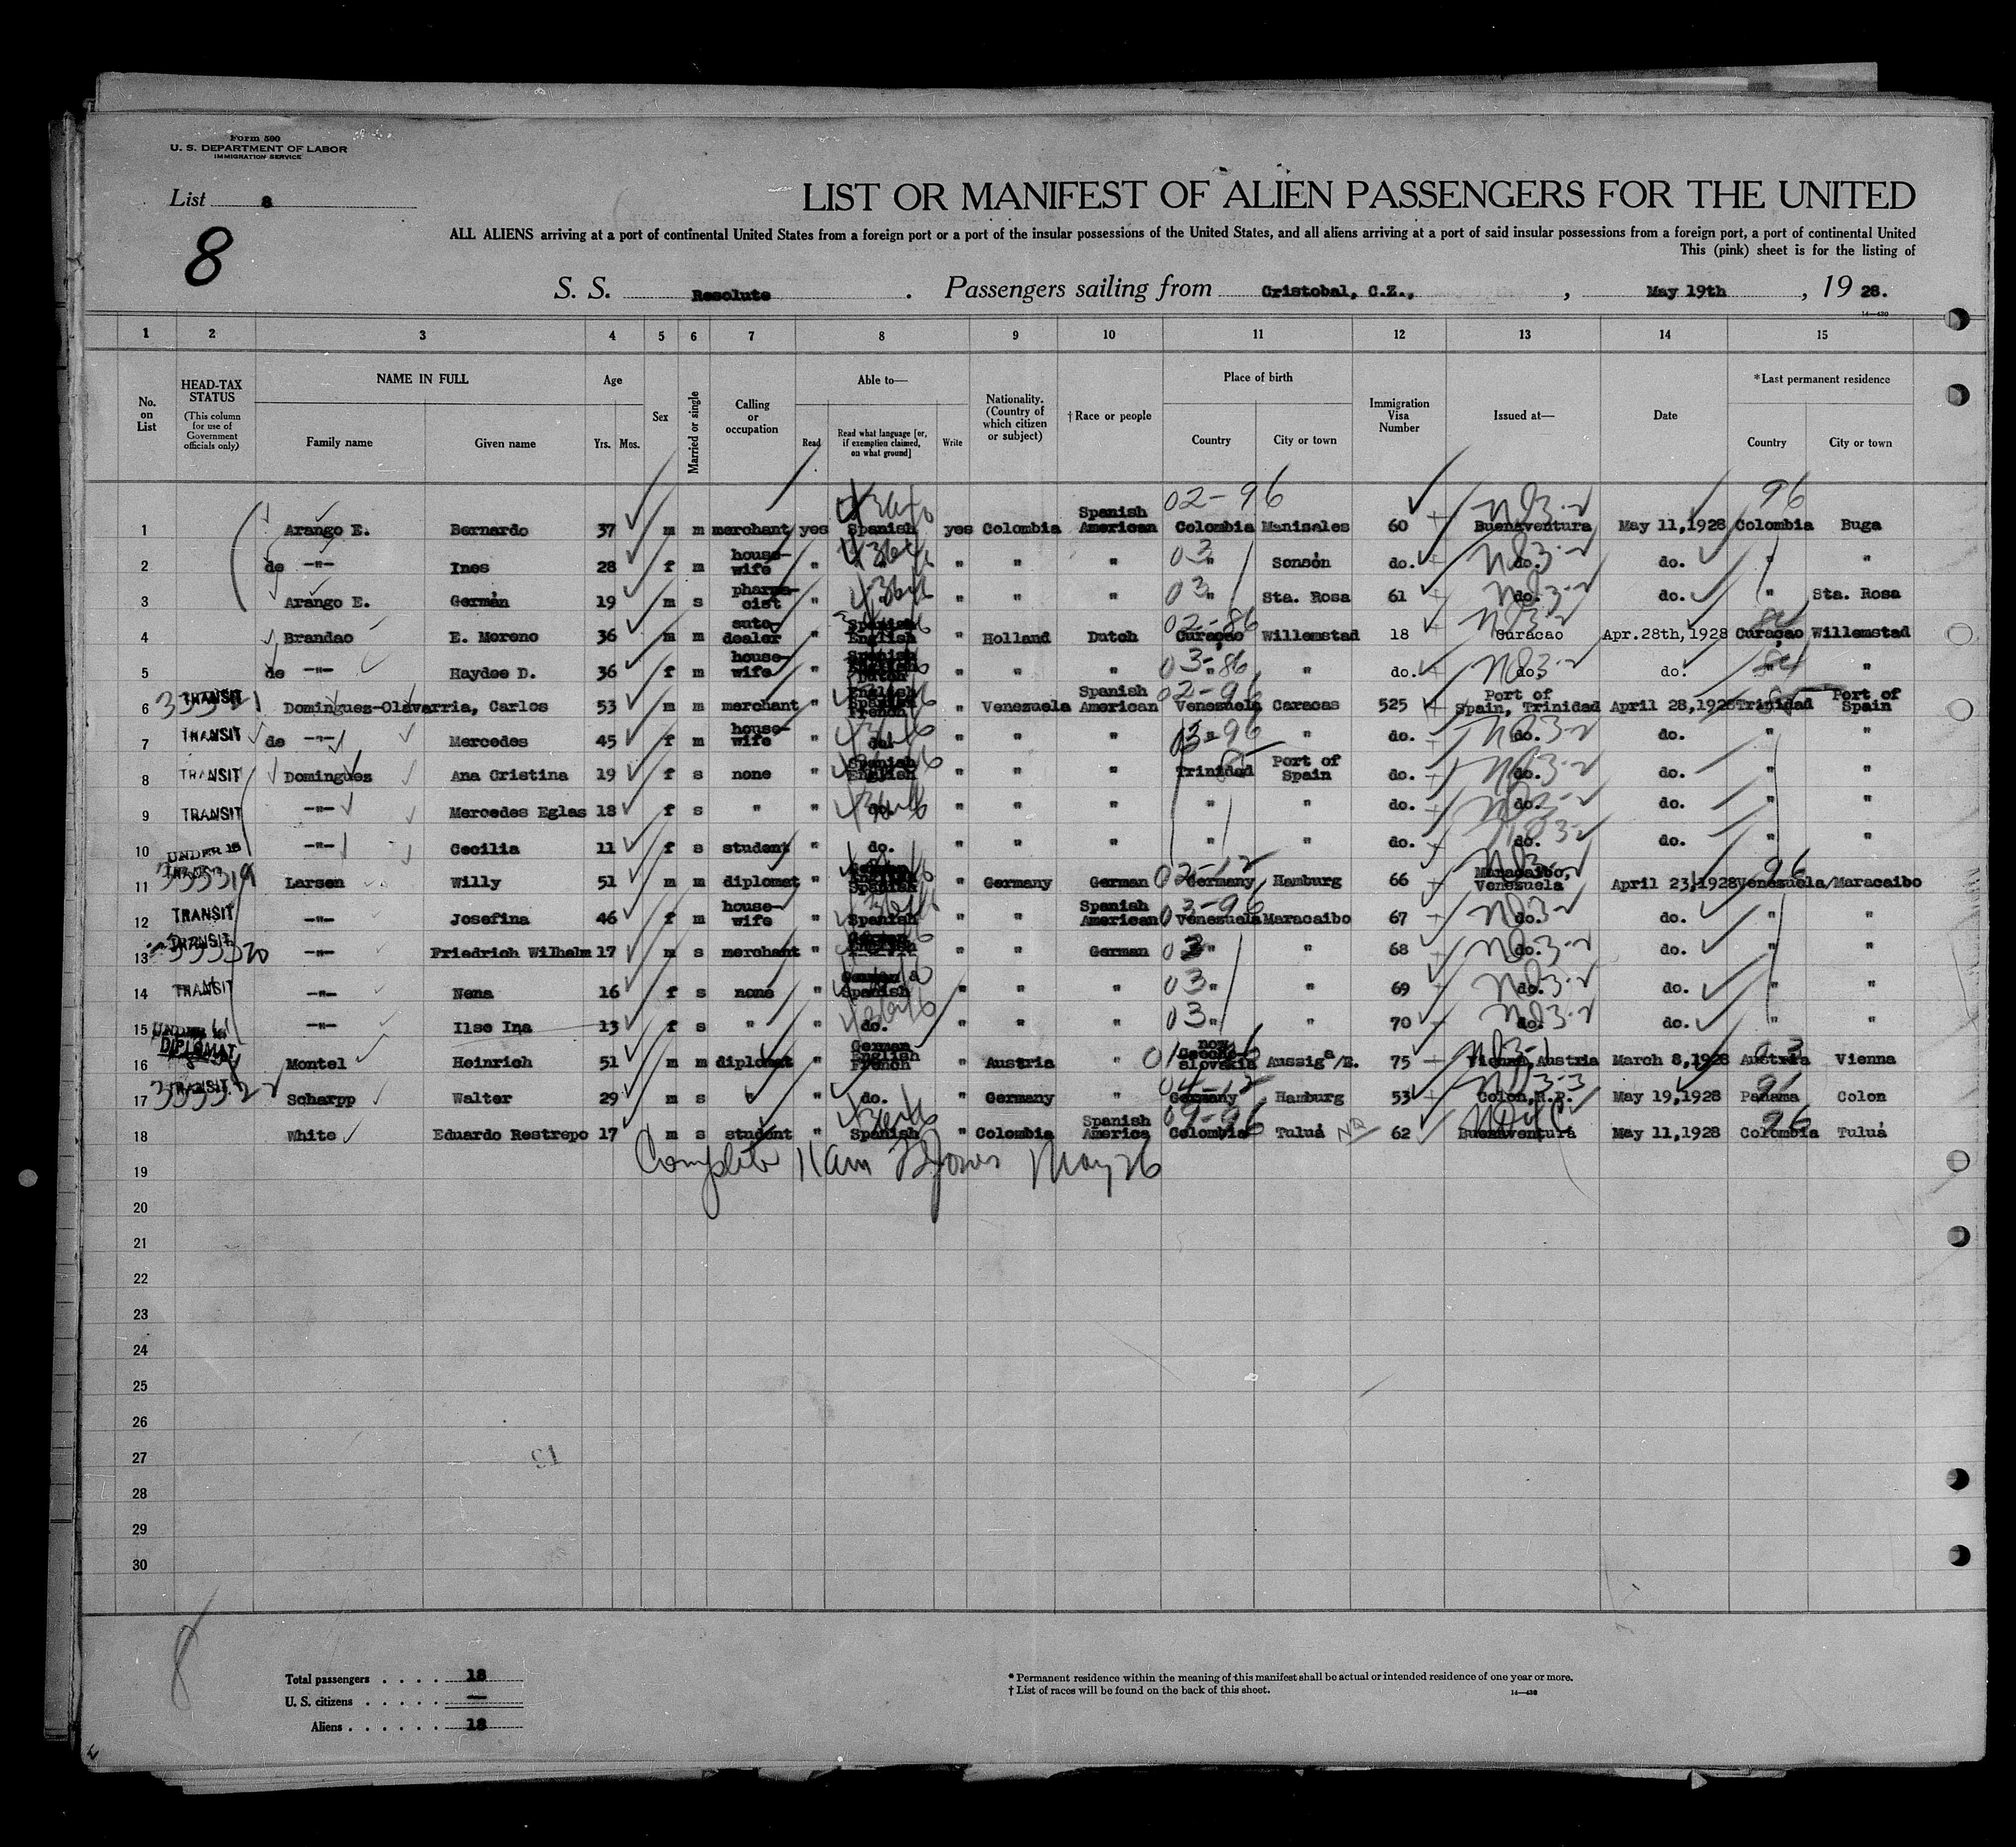 Form 500
U. S. DEPARTMENT OF LABOR
IMMIGRATION SERVICE
List 8
8
LIST OR MANIFEST OF ALIEN PASSENGERS FOR THE UNITED
ALL ALIENS arriving at a port of continental United States from a foreign port or a port of the insular possessions of the United States, and all aliens arriving at a port of said insular possessions from a foreign port, a port of continental United
This (pink) sheet is for the listing of
S. S. Resolute . Passengers sailing from Cristobal, C.Z., , May 19th , 19 28.
14—430
1 2 3 4 5 6 7 8 9 10 11 12 13 14 15
No. on List HEAD-TAX STATUS (This column for use of Government officials only) NAME IN FULL Family name Given name Age Yrs. Mos. Sex Married or single Calling or occupation Able to— Read Read what language [or, if exemption claimed, on what ground] Write Nationality. (Country of which citizen or subject) † Race or people Place of birth Country City or town Immigration Visa Number Issued at— Date *Last permanent residence Country City or town
02-96 96
1 Arango E. Bernardo 37 m m merchant yes Spanish yes Colombia Spanish American Colombia Manizales 60 Buenaventura May 11,1928 Colombia Buga
2 de —"— Ines 28 f m house-wife " " " " " 03 " Sonsón do. do. do. " "
3 Arango E. Germán 19 m s pharma-cist " " " " 03 " Sta. Rosa 61 do. do. " Sta. Rosa
4 Brandao E. Moreno 36 m m auto-dealer " Spanish English " Holland Dutch 02-86 Curaçao Willemstad 18 Curacao Apr.28th,1928 Curaçao Willemstad
5 de —"— Haydee D. 36 f m house-wife " Spanish English Dutch " " " 03-86 " " do. do. do. " "
6 TRANSIT Dominguez-Olavarria, Carlos 53 m m merchant " English Spanish French " Venezuela Spanish American 02-96 Venezuela Caracas 525 Port of Spain, Trinidad April 28,1928 Trinidad Port of Spain
7 TRANSIT de —"— Mercedes 45 f m house-wife " do. " " " 03-96 " " do. do. do. " "
8 TRANSIT Dominguez Ana Cristina 19 f s none " Spanish English " " " Trinidad Port of Spain do. do. do. " "
9 TRANSIT —"— Mercedes Eglas 18 f s " " do. " " " " " do. do. do. " "
10 UNDER 16 —"— Cecilia 11 f s student " do. " " " " " do. do. do. " "
11 333319 Larsen Willy 51 m m diplomat " German English Spanish " Germany German 02-12 Germany Hamburg 66 Maracaibo, Venezuela April 23,1928 Venezuela/Maracaibo 96
12 TRANSIT —"— Josefina 46 f m house-wife " Spanish " " Spanish American 03-96 Venezuela Maracaibo 67 do. do. " "
13 TRANSIT 333320 —"— Friedrich Wilhelm 17 m s merchant " " " German 03 " " 68 do. do. " "
14 TRANSIT —"— Nena 16 f s none " German Spanish " " " 03 " " 69 do. do. " "
15 UNDER 16 —"— Ilse Ina 13 f s " " do. " " " 03 " " 70 do. do. " "
16 DIPLOMAT Montel Heinrich 51 m m diplomat " German English French " Austria " now Czecho-Slovakia Aussig a/E. 75 Vienna, Austria March 8,1928 Austria Vienna
17 TRANSIT Scharpp Walter 29 m s " do. " Germany " 04-12 Germany Hamburg 53 Colon,R.P. May 19,1928 Panama Colon
18 White Eduardo Restrepo 17 m s student " Spanish " Colombia Spanish America Colombia Tuluá 62 Buenaventurá May 11,1928 Colombia Tuluá
Complete 11am May 26
19
20
21
22
23
24
25
26
27
28
29
30
8
Total passengers . . . . 18
U. S. citizens . . . . . —
Aliens . . . . . . 18
* Permanent residence within the meaning of this manifest shall be actual or intended residence of one year or more.
† List of races will be found on the back of this sheet.
14—430